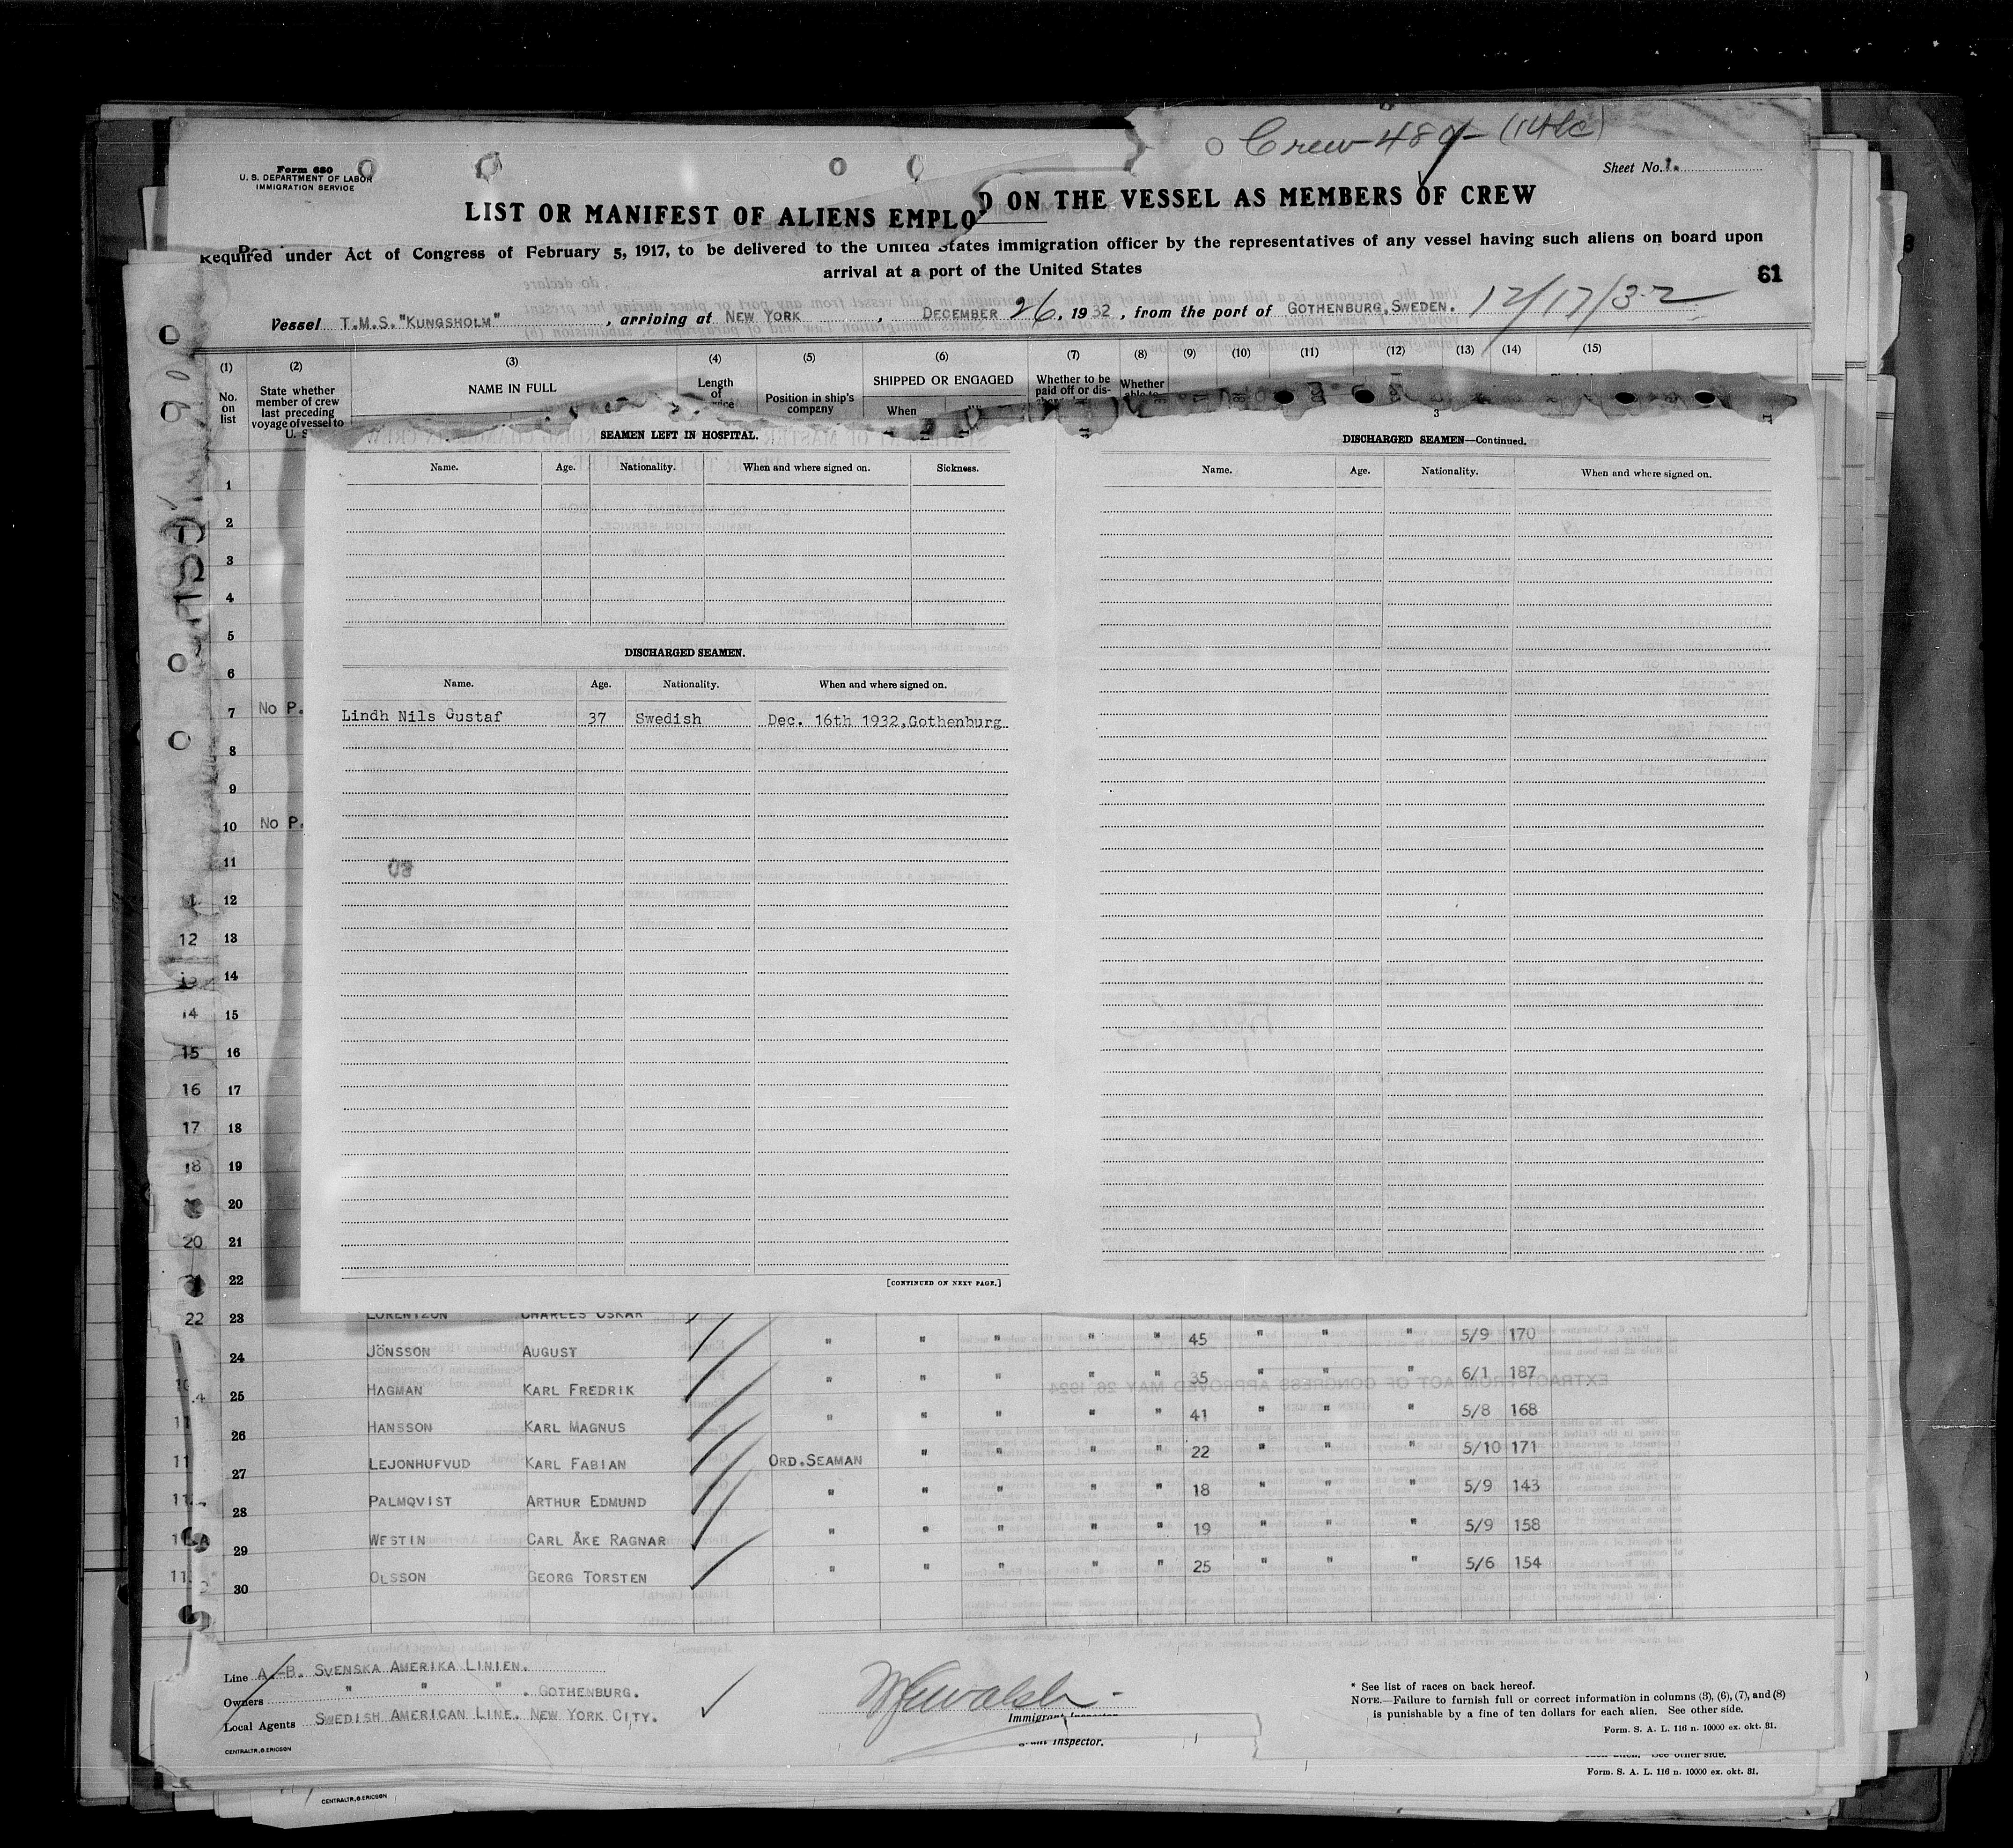 Crew
Form 680
U. S. DEPARTMENT OF LABOR
IMMIGRATION SERVICE
Sheet No. 1.
LIST OR MANIFEST OF ALIENS EMPLO D ON THE VESSEL AS MEMBERS OF CREW
Required under Act of Congress of February 5, 1917, to be delivered to the United States immigration officer by the representatives of any vessel having such aliens on board upon
arrival at a port of the United States
61
Vessel T.M.S. "KUNGSHOLM" , arriving at NEW YORK , DECEMBER 26, 1932, from the port of GOTHENBURG, SWEDEN. 12/17/32
(1) (2) (3) (4) (5) (6) (7) (8) (9) (10) (11) (12) (13) (14) (15)
No. on list
State whether member of crew last preceding voyage of vessel to U. S
NAME IN FULL
Length of
Position in ship's company
SHIPPED OR ENGAGED
When
Whether to be paid off or dis-
Whether
SEAMEN LEFT IN HOSPITAL.
Name. Age. Nationality. When and where signed on. Sickness.
DISCHARGED SEAMEN.
Name. Age. Nationality. When and where signed on.
Lindh Nils Gustaf 37 Swedish Dec. 16th 1932, Gothenburg
[CONTINUED ON NEXT PAGE.]
DISCHARGED SEAMEN—Continued.
Name. Age. Nationality. When and where signed on.
1
2
3
4
5
6
7 No P.
8
9
10 No P.
11
12
12 13
14
14 15
15 16
16 17
17 18
18 19
20
20 21
22
22 23 LORENTZON CHARLES OSKAR
24 JÖNSSON AUGUST " " " " " 45 " " " 5/9 170
25 HAGMAN KARL FREDRIK " " " " " 35 " " " 6/1 187
26 HANSSON KARL MAGNUS " " " " " 41 " " " 5/8 168
27 LEJONHUFVUD KARL FABIAN ORD. SEAMAN " " " " 22 " " " 5/10 171
28 PALMQVIST ARTHUR EDMUND " " " " " 18 " " " 5/9 143
29 WESTIN CARL ÅKE RAGNAR " " " " " 19 " " " 5/9 158
30 OLSSON GEORG TORSTEN " " " " " 25 " " " 5/6 154
Line A.-B. SVENSKA AMERIKA LINIEN.
Owners " " " . GOTHENBURG.
Local Agents SWEDISH AMERICAN LINE. NEW YORK CITY.
CENTRALTR, G. ERICSON
Immigrant Inspector
Inspector.
* See list of races on back hereof.
NOTE.—Failure to furnish full or correct information in columns (3), (6), (7), and (8)
is punishable by a fine of ten dollars for each alien. See other side.
Form. S. A. L. 116 n. 10000 ex. okt. 31.
See other side.
Form. S. A. L. 116 n. 10000 ex. okt. 31.
CENTRALTR, G. ERICSON